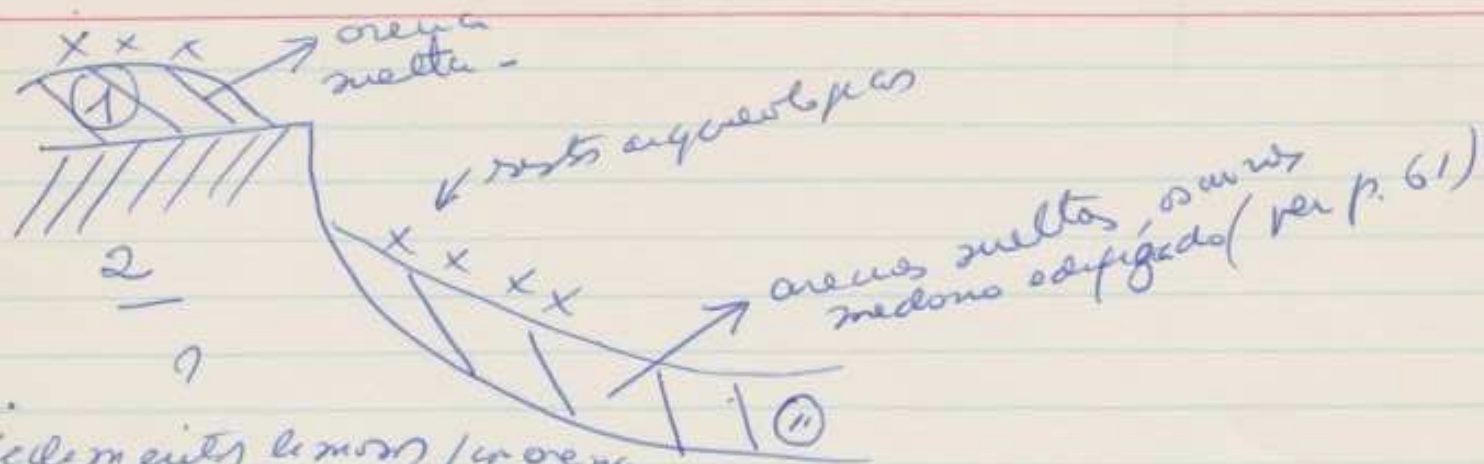 x x x
arena
suelta -
1
restos arqueologicos
x x x x
arenas sueltas, osuros
medano edafizado (ver p. 61)
2
?
limosos